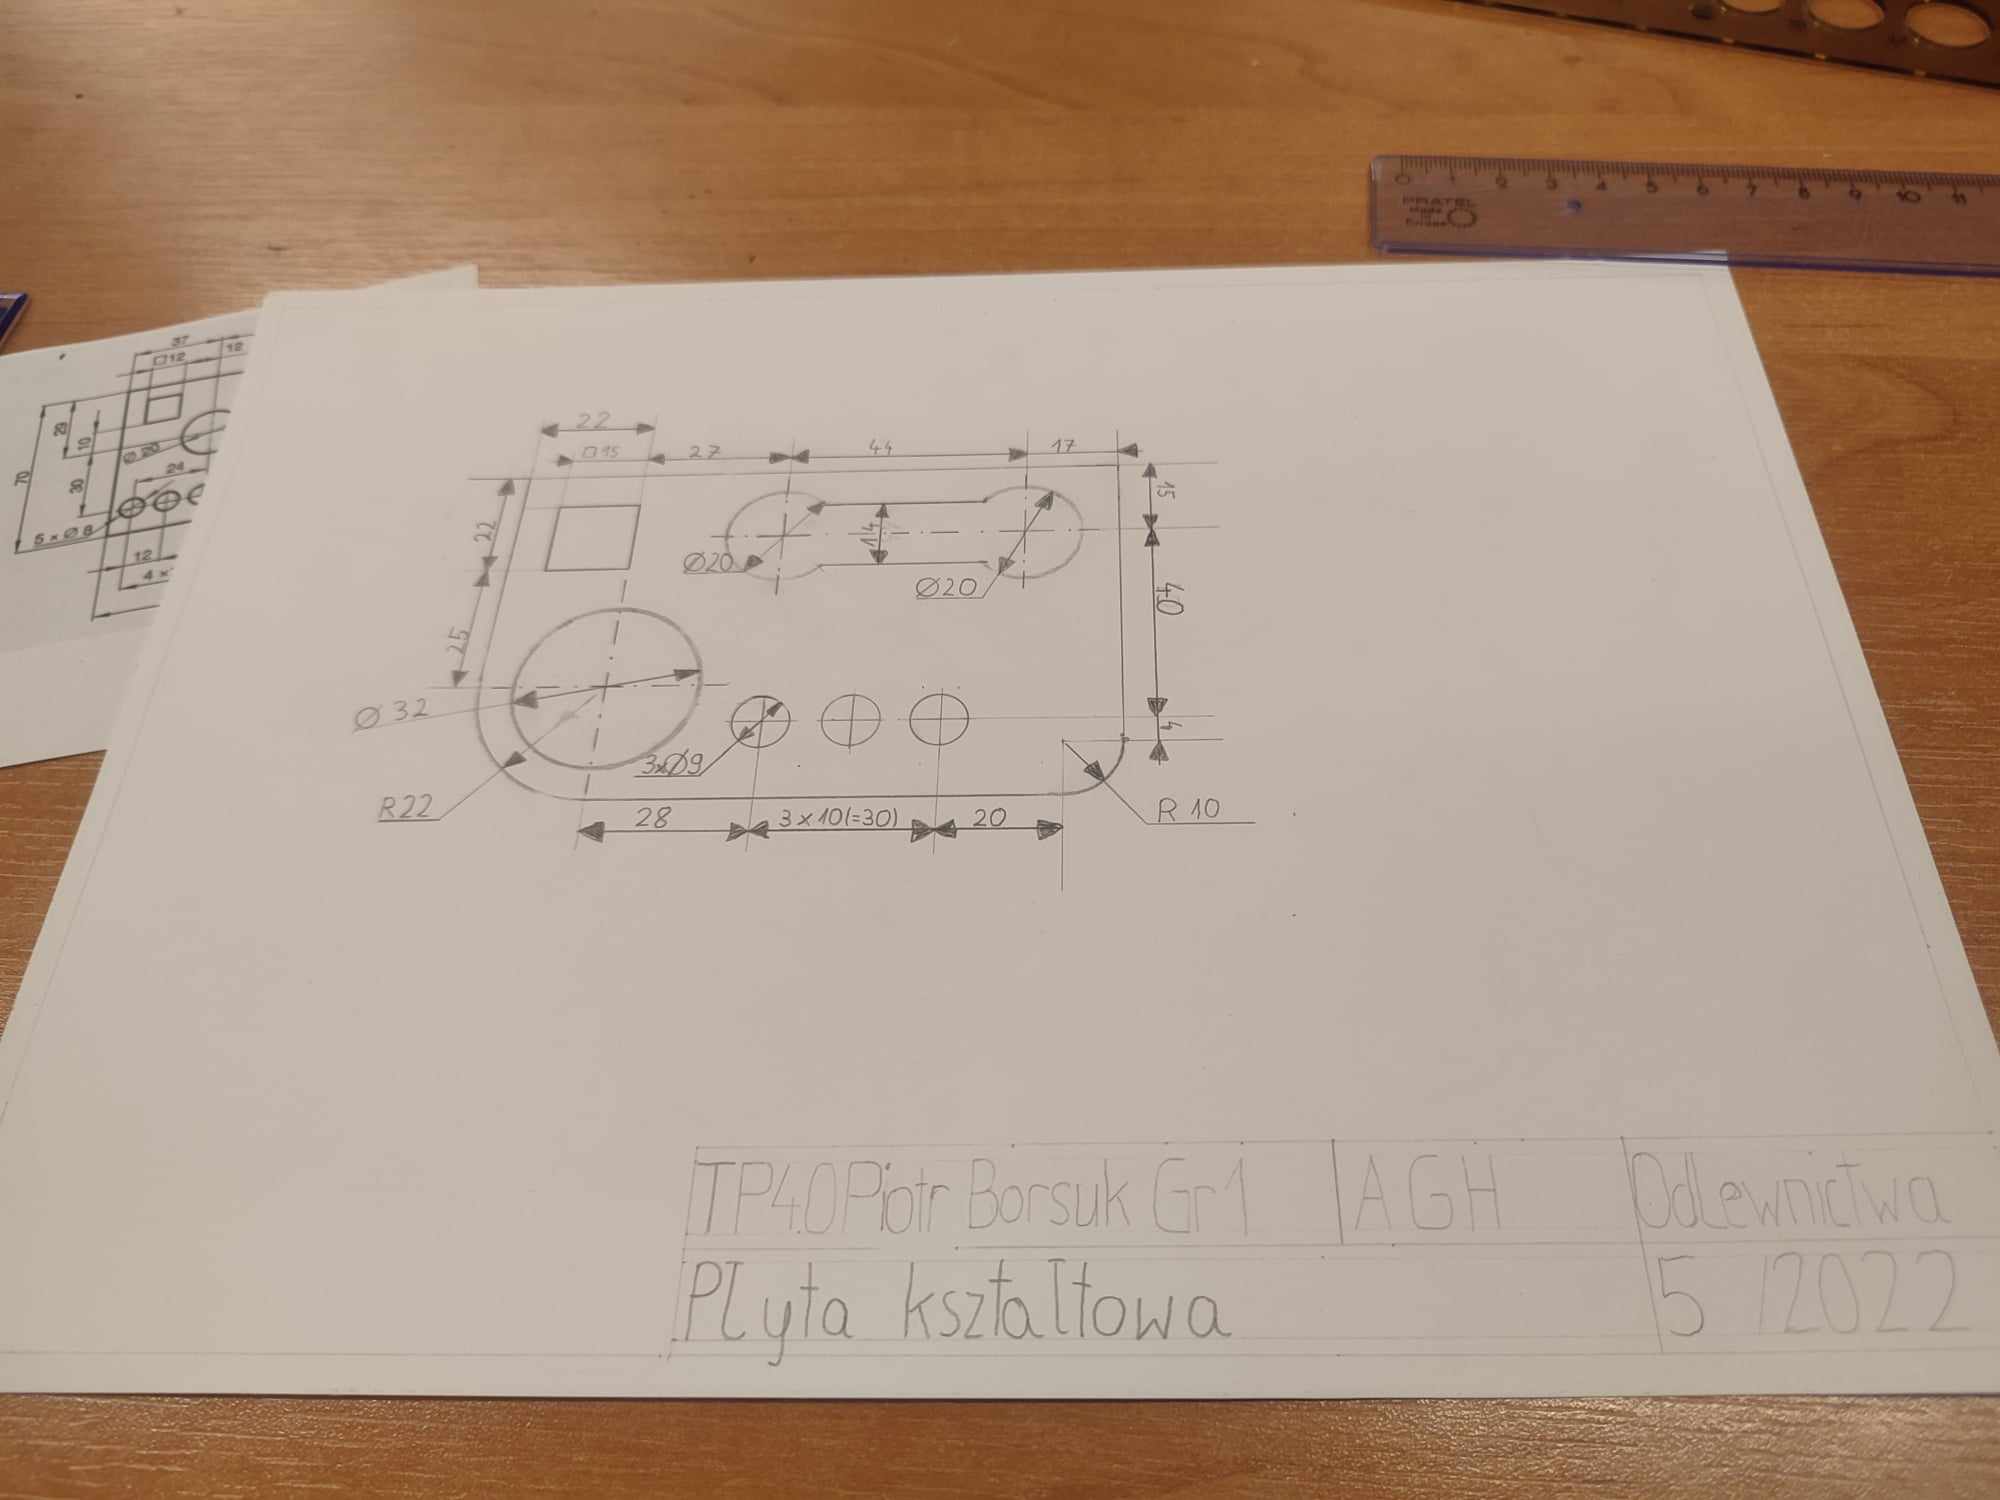 0 1 2 3 4 5 6 7 8 9 10 11
PRATEL
Made
in
37
□12
12
29
10
Ø 20
70
24
30
5 × Ø 8
12
4×
22
□15
27
44
17
15
22
14
Ø20
Ø20
40
25
Ø 32
4
3xØ9
R22
28
3 x 10(=30)
20
R 10
TP4.0 Piotr Borsuk Gr 1
AGH
Odlewnictwa
Płyta kształtowa
5 /2022